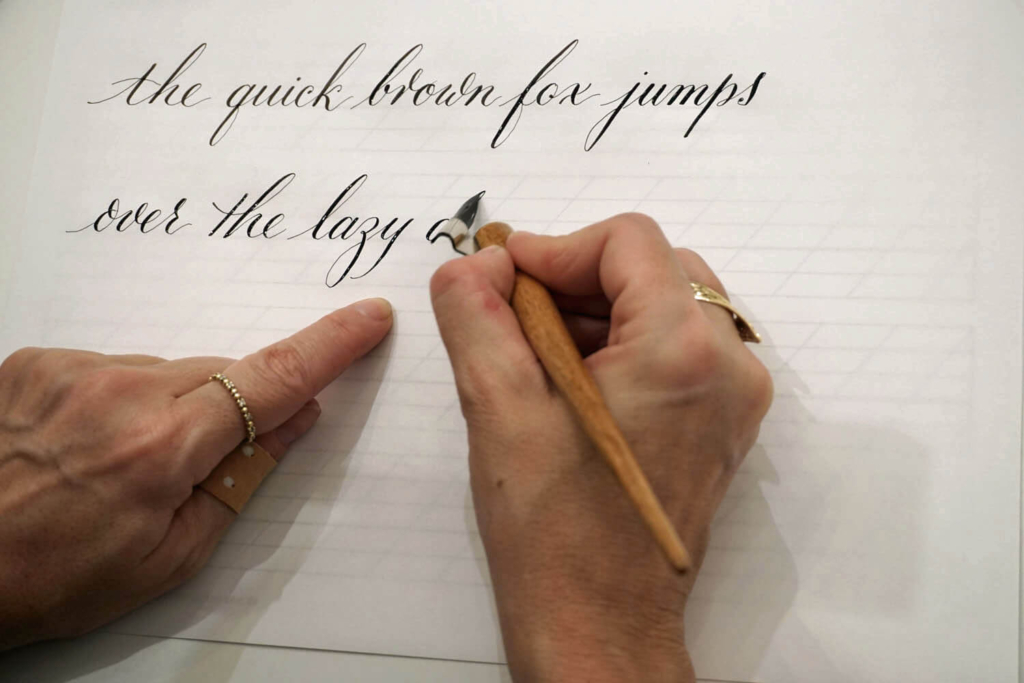 the quick brown fox jumps
over the lazy